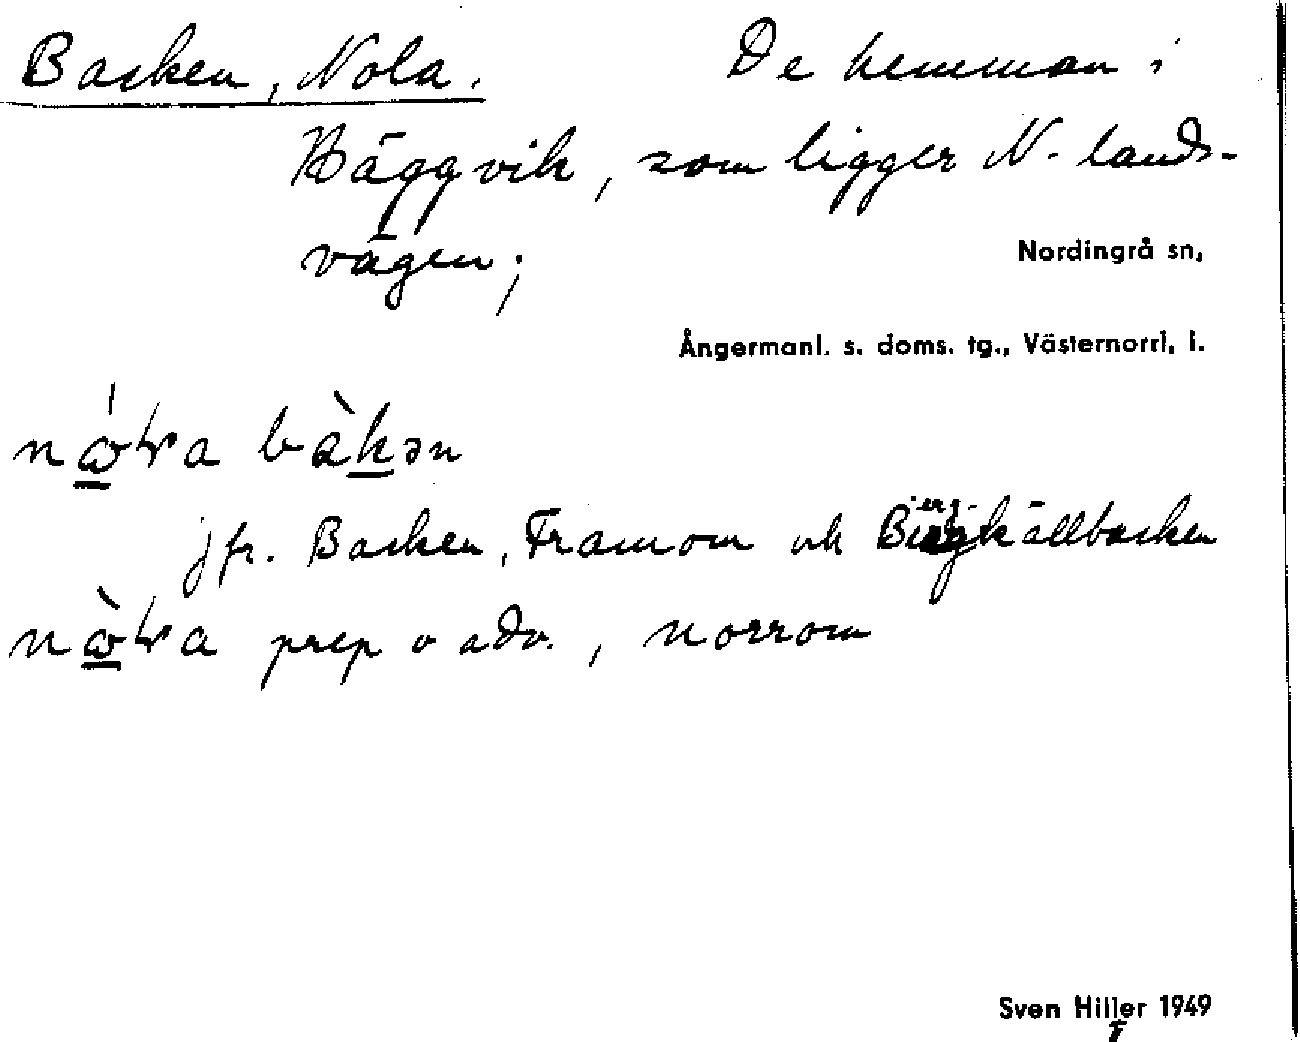 Backen, Nola. De hemman i
Häggvik, som ligger N. lands-
vägen;
Nordingrå sn,
Ångermanl. s. doms. tg., Västernorrl. l.
bàkən
jfr. Backen, Framom och
prep o adv., norrom
Sven Hiller 1949